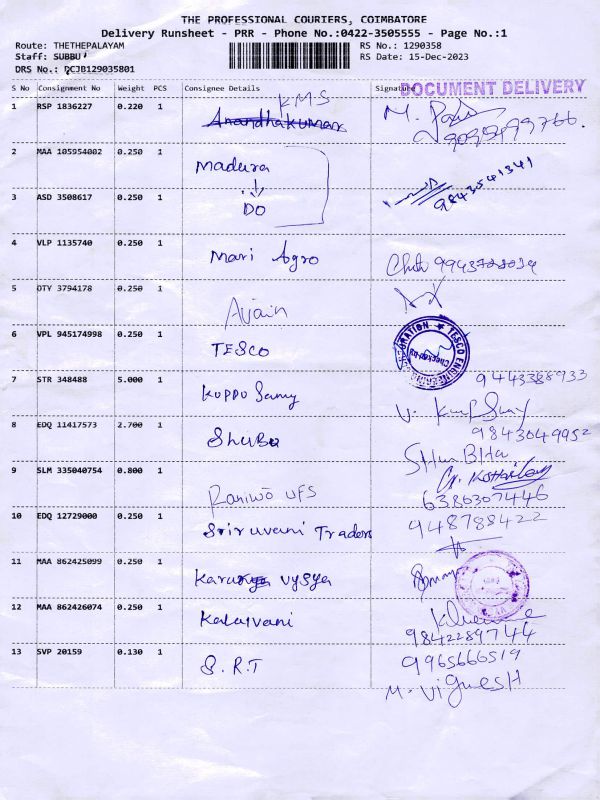 THE PROFESSIONAL COURIERS, COIMBATORE
Delivery Runsheet - PRR - Phone No.:0422-3505555 - Page No.:1
Route: THETHEPALAYAM
RS No.: 1290358
Staff: SUBBU
RS Date: 15-Dec-2023
DRS No.: PCJB129035801
S No Consignment No Weight PCS Consignee Details Signature
DOCUMENT DELIVERY
KMS
1 RSP 1836227 0.220 1 Anandhakumar M.
2 MAA 105954002 0.250 1 Madura
3 ASD 3508617 0.250 1 DO 9843541341
4 VLP 1135740 0.250 1 Mari Agro
5 OTY 3794178 0.250 1
6 VPL 945174998 0.250 1 TESCO TESCO ENGINEERING
9443388933
7 STR 348488 5.000 1 Kuppu Samy
9843049952
8 EDQ 11417573 2.700 1 Shuba
9 SLM 335040754 0.800 1 UFS 6380307446
10 EDQ 12729000 0.250 1 Siruvani Traders
11 MAA 862425099 0.250 1 Vysya
12 MAA 862426074 0.250 1 Kalaivani
9842289744
13 SVP 20159 0.130 1 S.R.T 9965666519
M. VIGNESH